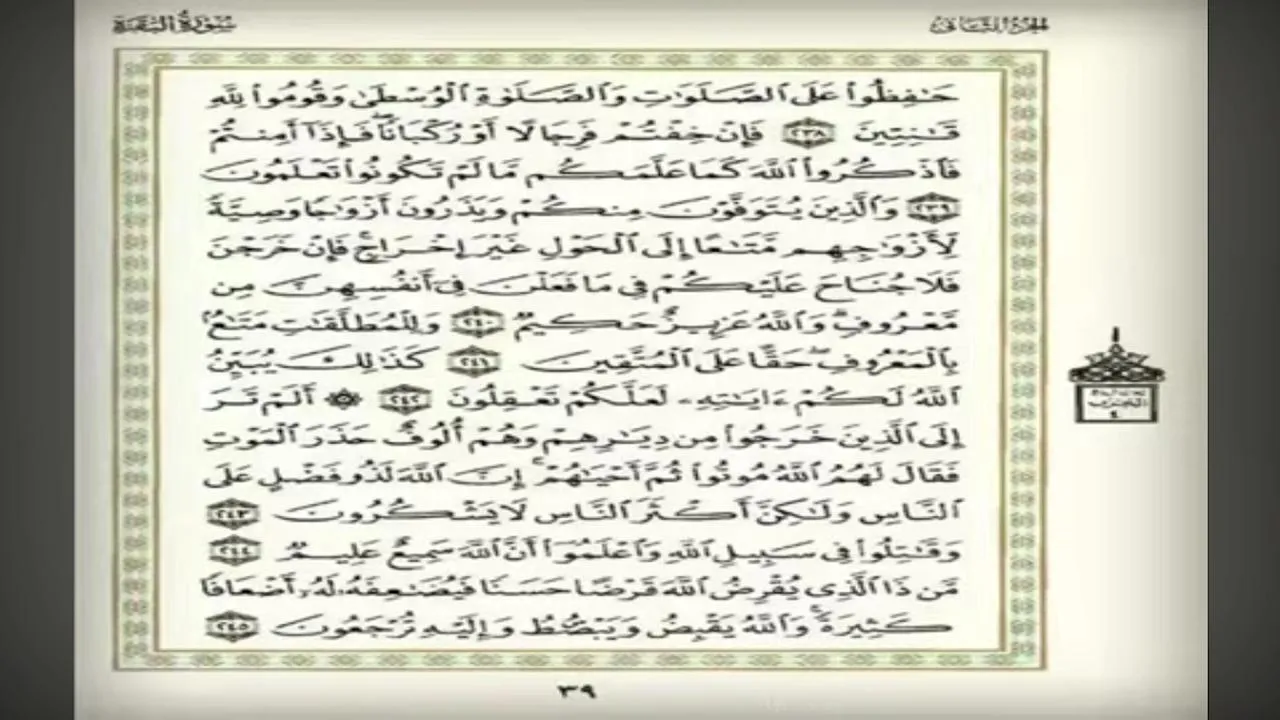 الجزء الثاني
سورة البقرة
حَٰفِظُوا۟ عَلَى ٱلصَّلَوَٰتِ وَٱلصَّلَوٰةِ ٱلْوُسْطَىٰ وَقُومُوا۟ لِلَّهِ
قَٰنِتِينَ ٢٣٨ فَإِنْ خِفْتُمْ فَرِجَالًا أَوْ رُكْبَانًا ۖ فَإِذَآ أَمِنتُمْ
فَٱذْكُرُوا۟ ٱللَّهَ كَمَا عَلَّمَكُم مَّا لَمْ تَكُونُوا۟ تَعْلَمُونَ
٢٣٩ وَٱلَّذِينَ يُتَوَفَّوْنَ مِنكُمْ وَيَذَرُونَ أَزْوَٰجًا وَصِيَّةً
لِّأَزْوَٰجِهِم مَّتَٰعًا إِلَى ٱلْحَوْلِ غَيْرَ إِخْرَاجٍ ۚ فَإِنْ خَرَجْنَ
فَلَا جُنَاحَ عَلَيْكُمْ فِى مَا فَعَلْنَ فِىٓ أَنفُسِهِنَّ مِن
مَّعْرُوفٍ ۗ وَٱللَّهُ عَزِيزٌ حَكِيمٌ ٢٤٠ وَلِلْمُطَلَّقَٰتِ مَتَٰعٌۢ
بِٱلْمَعْرُوفِ ۖ حَقًّا عَلَى ٱلْمُتَّقِينَ ٢٤١ كَذَٰلِكَ يُبَيِّنُ
ٱللَّهُ لَكُمْ ءَايَٰتِهِۦ لَعَلَّكُمْ تَعْقِلُونَ ٢٤٢ ۞ أَلَمْ تَرَ
إِلَى ٱلَّذِينَ خَرَجُوا۟ مِن دِيَٰرِهِمْ وَهُمْ أُلُوفٌ حَذَرَ ٱلْمَوْتِ
فَقَالَ لَهُمُ ٱللَّهُ مُوتُوا۟ ثُمَّ أَحْيَٰهُمْ ۚ إِنَّ ٱللَّهَ لَذُو فَضْلٍ عَلَى
ٱلنَّاسِ وَلَٰكِنَّ أَكْثَرَ ٱلنَّاسِ لَا يَشْكُرُونَ ٢٤٣
وَقَٰتِلُوا۟ فِى سَبِيلِ ٱللَّهِ وَٱعْلَمُوٓا۟ أَنَّ ٱللَّهَ سَمِيعٌ عَلِيمٌ ٢٤٤
مَّن ذَا ٱلَّذِى يُقْرِضُ ٱللَّهَ قَرْضًا حَسَنًا فَيُضَٰعِفَهُۥ لَهُۥٓ أَضْعَافًا
كَثِيرَةً ۚ وَٱللَّهُ يَقْبِضُ وَيَبْصُۜطُ وَإِلَيْهِ تُرْجَعُونَ ٢٤٥
الحزب
٤
٣٩